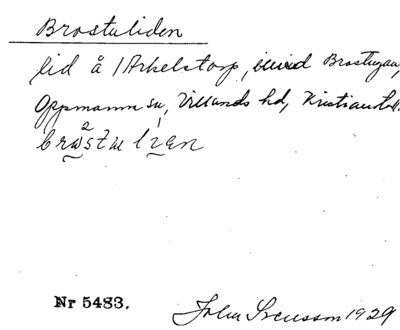 Brostuliden
lid å /Arkelstorp, invid Brostugan,
Oppmanna sn, Villands hd, Kristianst. l.
Nr 5483.
John Svensson 1929